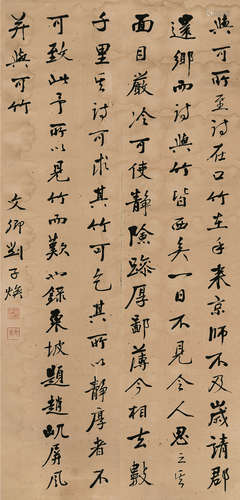 與可所至詩在口竹在手來京師不及歲請郡
還鄉而詩與竹皆西矣一日不見令人思之其
面目嚴冷可使靜險躁厚鄙薄今相去數
千里其詩可求其竹可乞其所以靜厚者不
可致此予所以見竹而歎也錄東坡題趙屼屏風
并與可竹
文卿劉子煥